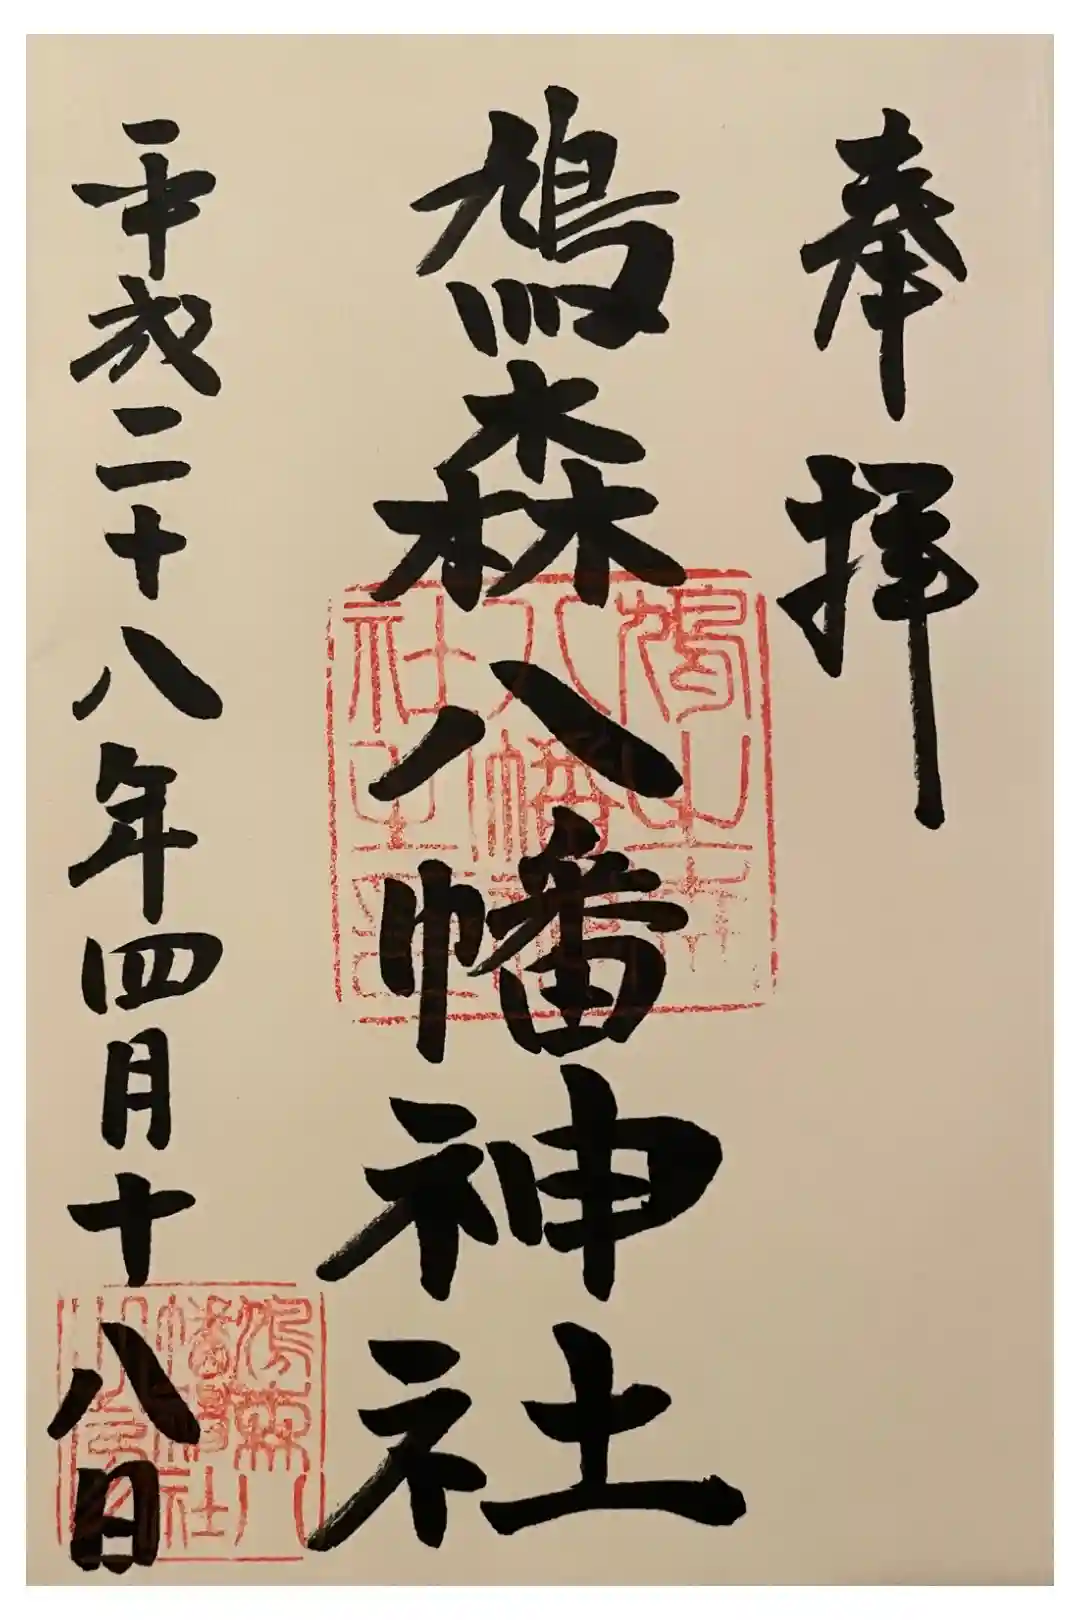 奉拝
鳩森八幡神社
平成二十八年四月十八日